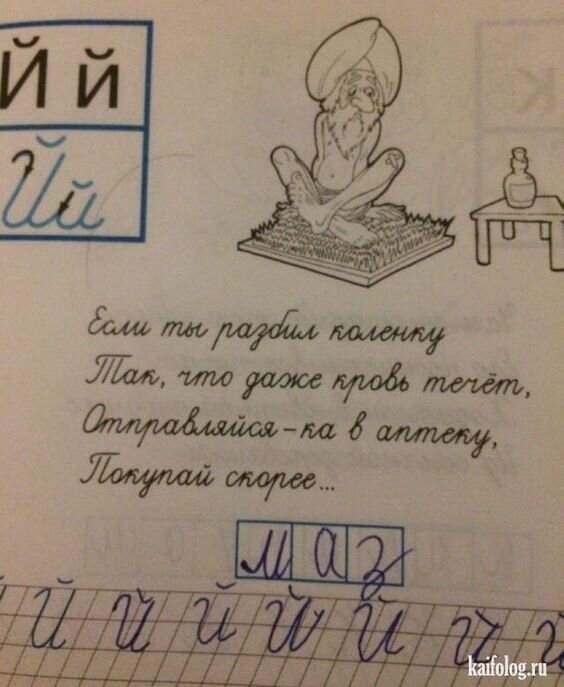 Й й
Й й
Если ты разбил коленку
Так, что даже кровь течёт,
Отправляйся-ка в аптеку,
Покупай скорее...
маз
Й й Й й Й й й
kaifolog.ru